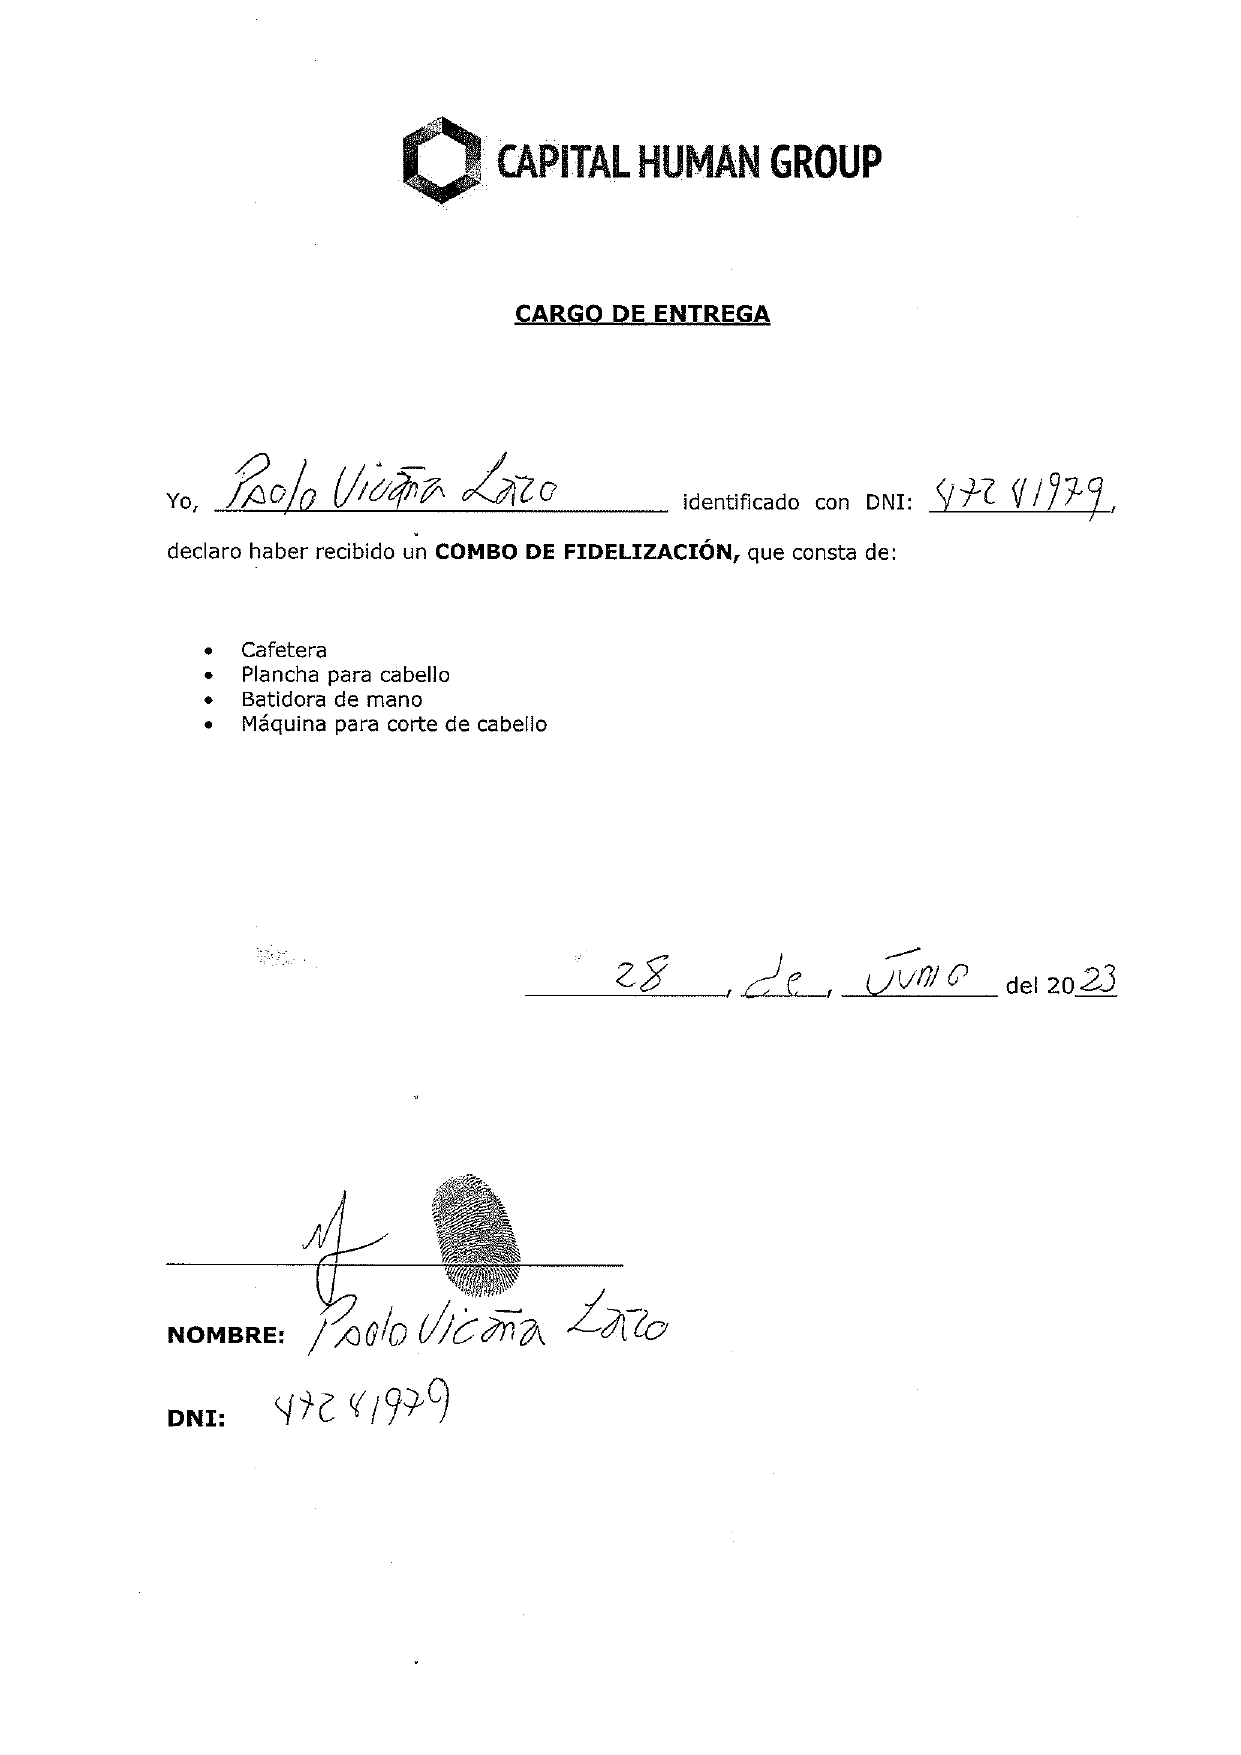 CAPITAL HUMAN GROUP
CARGO DE ENTREGA
Yo, Paolo Vicaña Lazo identificado con DNI: 47241979,
declaro haber recibido un COMBO DE FIDELIZACIÓN, que consta de:
• Cafetera
• Plancha para cabello
• Batidora de mano
• Máquina para corte de cabello
28, de, Junio del 2023
NOMBRE: Paolo Vicaña Lazo
DNI: 47241979